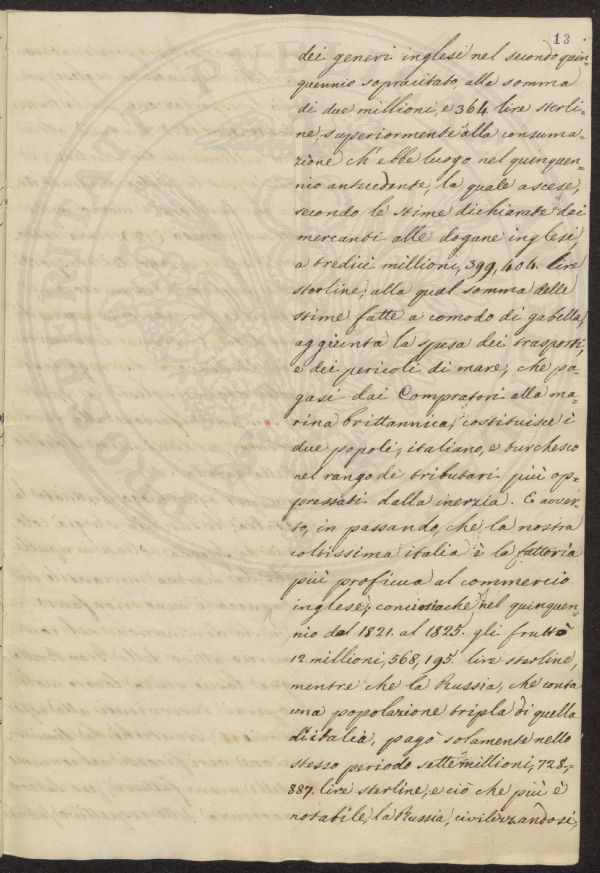 13
dei generi inglesi nel secondo quin=
quennio sopracitato, alla somma
di due millioni, e 364. lire sterli=
ne, superiormente alla consuma=
zione ch'ebbe luogo nel quinquen=
nio antecedente, la quale ascese,
secondo le stime dichiarate dai
mercanti alle dogane inglesi,
a tredici millioni, 399, 404. lire
sterline, alla qual somma delle
stime fatte a comodo di gabella,
aggiunta la spesa dei trasporti,
e dei pericoli di mare, che pa=
gasi dai Compratori alla ma=
rina brittannica, costituisce i
due popoli, italiano, e turchesco
nel rango di tributari più op=
pressati dalla inerzia. E avver=
to, in passando, che la nostra
coltissima italia è la fattoria
più proficua al commercio
inglese; conciosiachè nel quinquen=
nio dal 1821. al 1825. gli fruttò
12 millioni, 568, 195. lire sterline,
mentre che la Russia, che conta
una popolazione tripla di quella
d'italia, pagò solamente nello
stesso periodo sette millioni, 728,=
887. lire sterline, e ciò che più è
notabile, la Russia, civilizzandosi,
PROSPERITATI PVBL